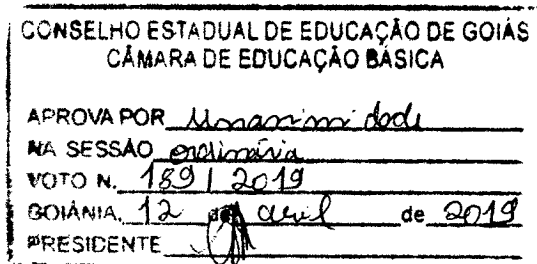 CONSELHO ESTADUAL DE EDUCAÇÃO DE GOIÁS
CÂMARA DE EDUCAÇÃO BÁSICA
APROVA POR Unanimidade
NA SESSÃO ordinária
VOTO N. 189 / 2019
GOIÂNIA, 12 de abril de 2019
PRESIDENTE